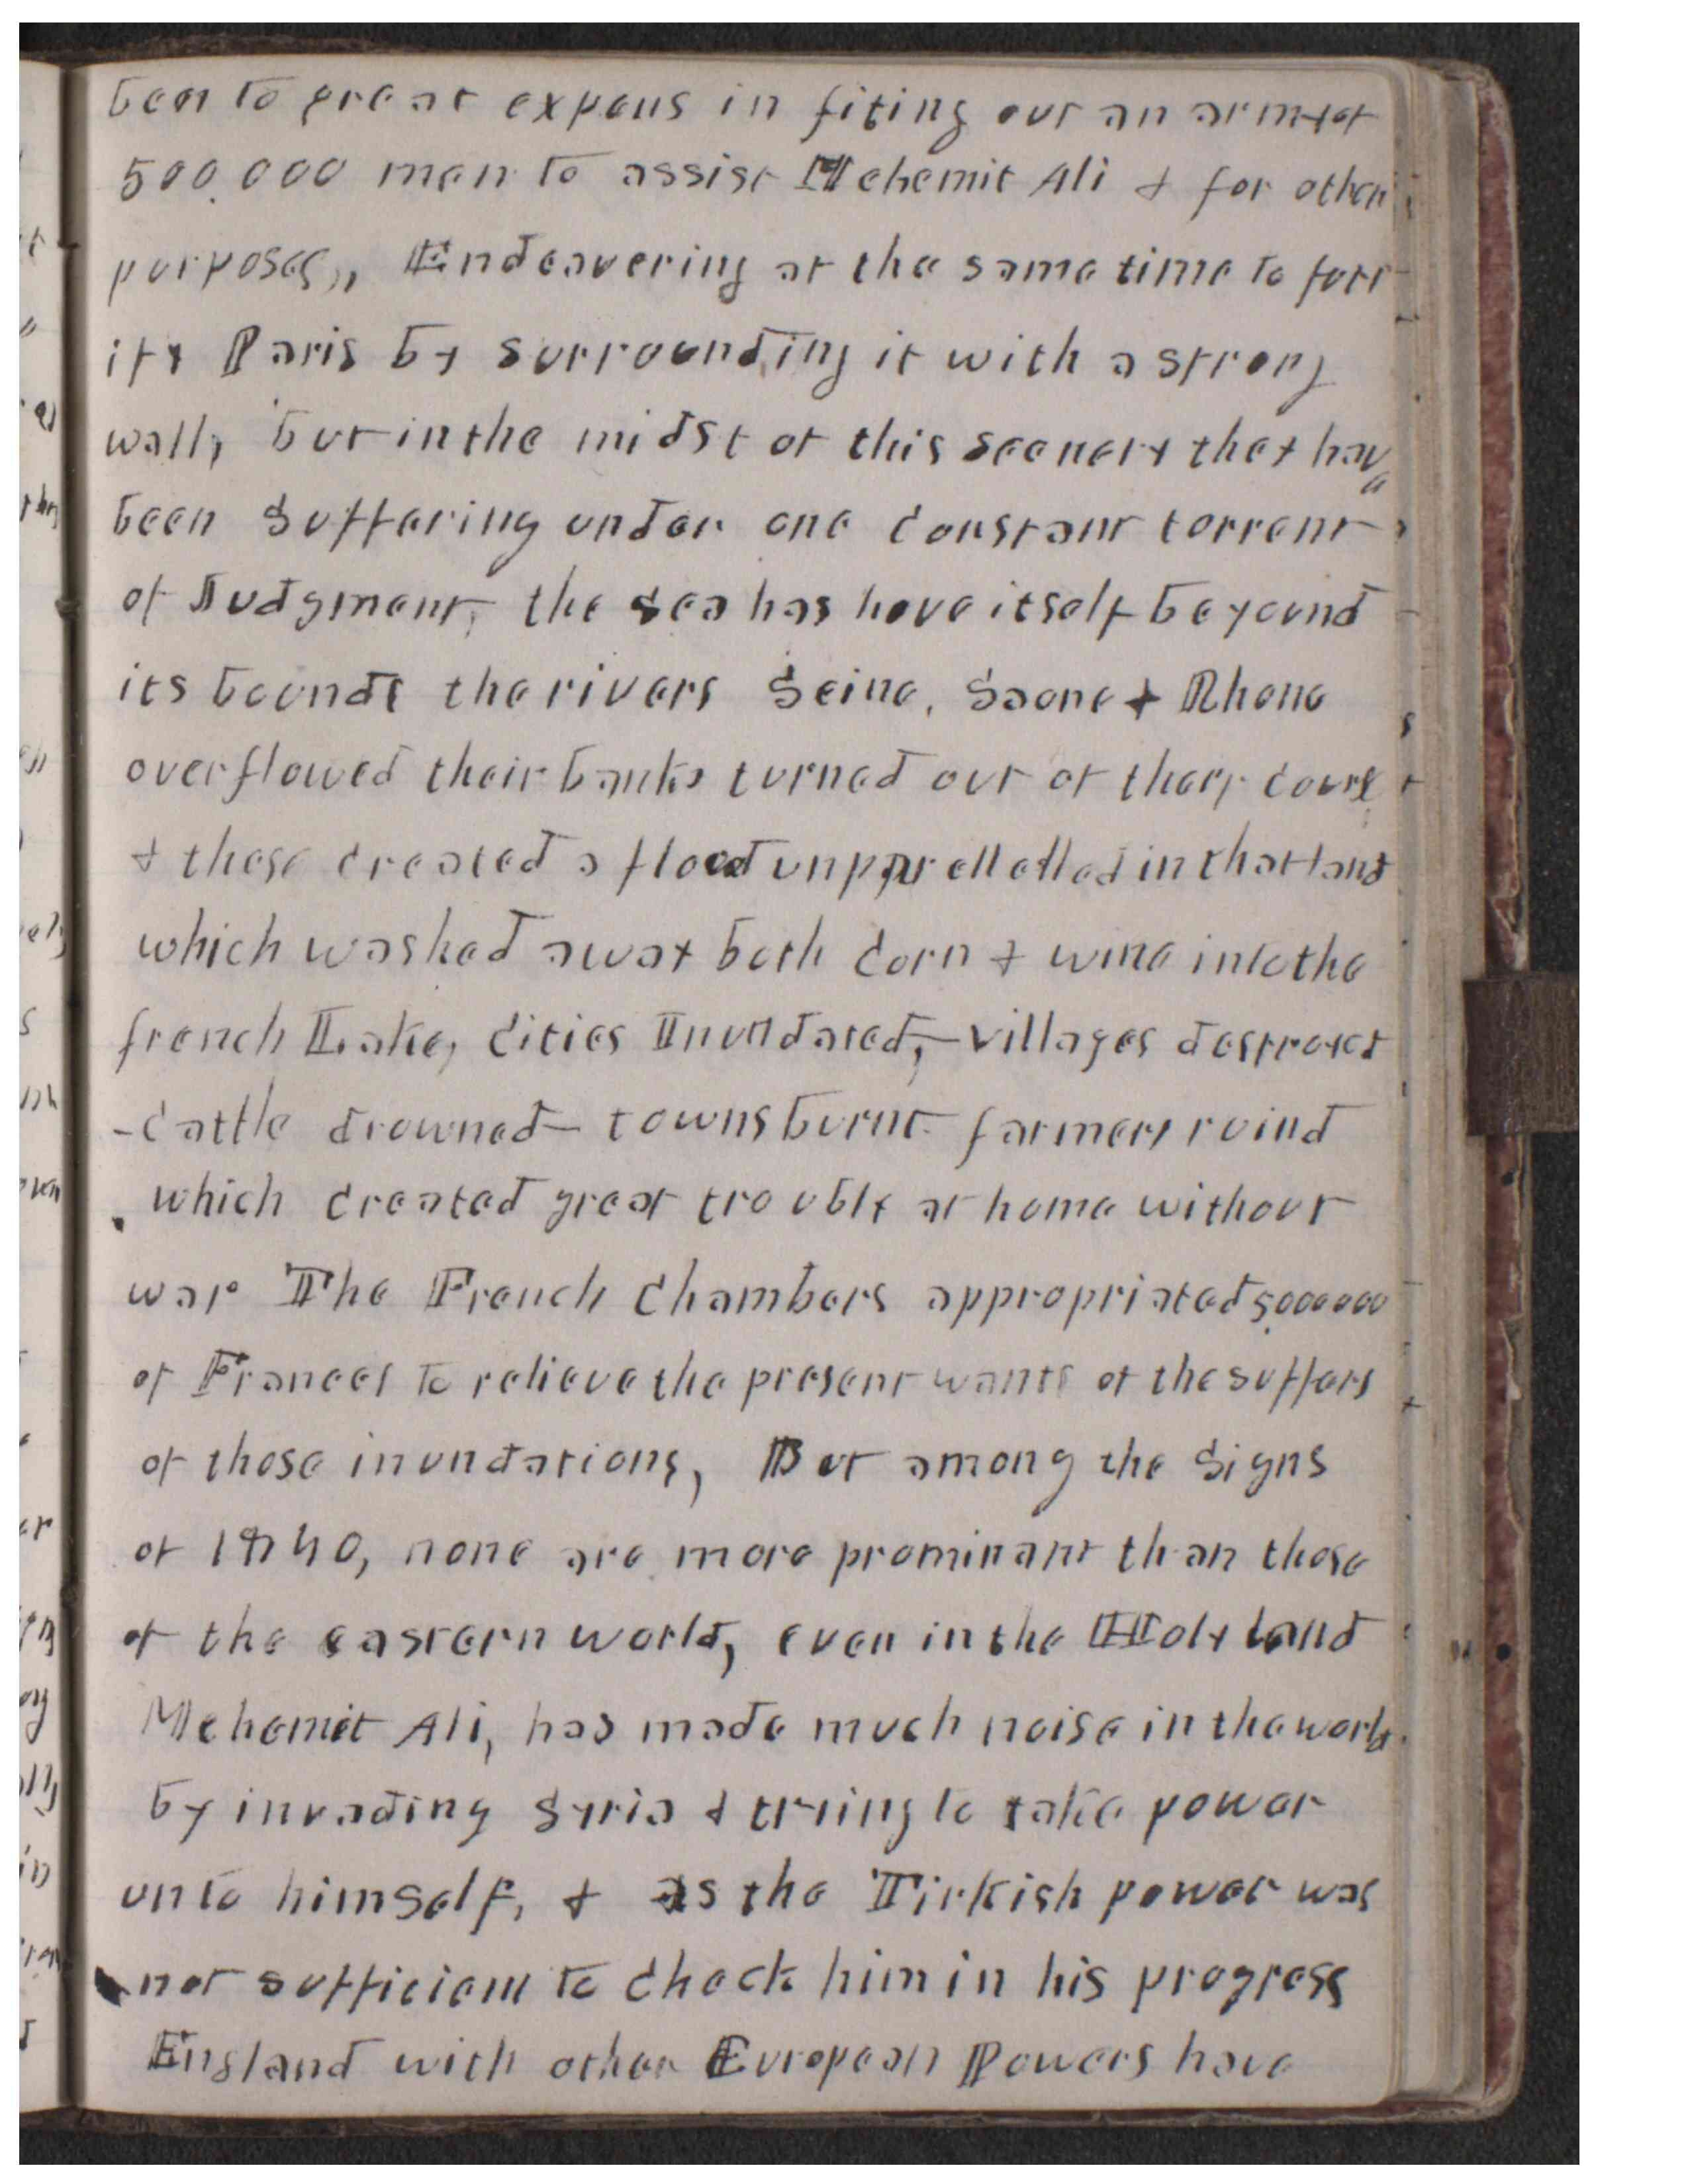 ben to great expens in fiting out an army of
500.000 men to assist Mehemit Ali & for other
purposes,, Endeavering at the same time to fort
ify Paris by surrounding it with a strong
wall, but in the midst of this scenery they have
been Suffering under one constant torrent
of Judgment, the sea has hove itself beyound
its bounds the rivers Seine, Saone & Rhone
overflowed their banks turned out of their cours
& these created a flood unpparellelled in that land
which washed away both corn & wine into the
french Lake, Cities Inundated,- villages destroyed
-Cattle drowned- towns burnt- farmers ruind
which created great trouble at home without
war The French Chambers appropriated 5.000000
of Francees to relieve the present wants of the suffers
of those inundations, But among the Signs
of 1840, none are more prominant than those
of the eastern world, even in the Holy land
Mehemet Ali, has made much noise in the world.
by invading Syria & tryiing to take power
unto himself, & as the Tirkish power was
not sufficient to check him in his progress
England with other European Powers have